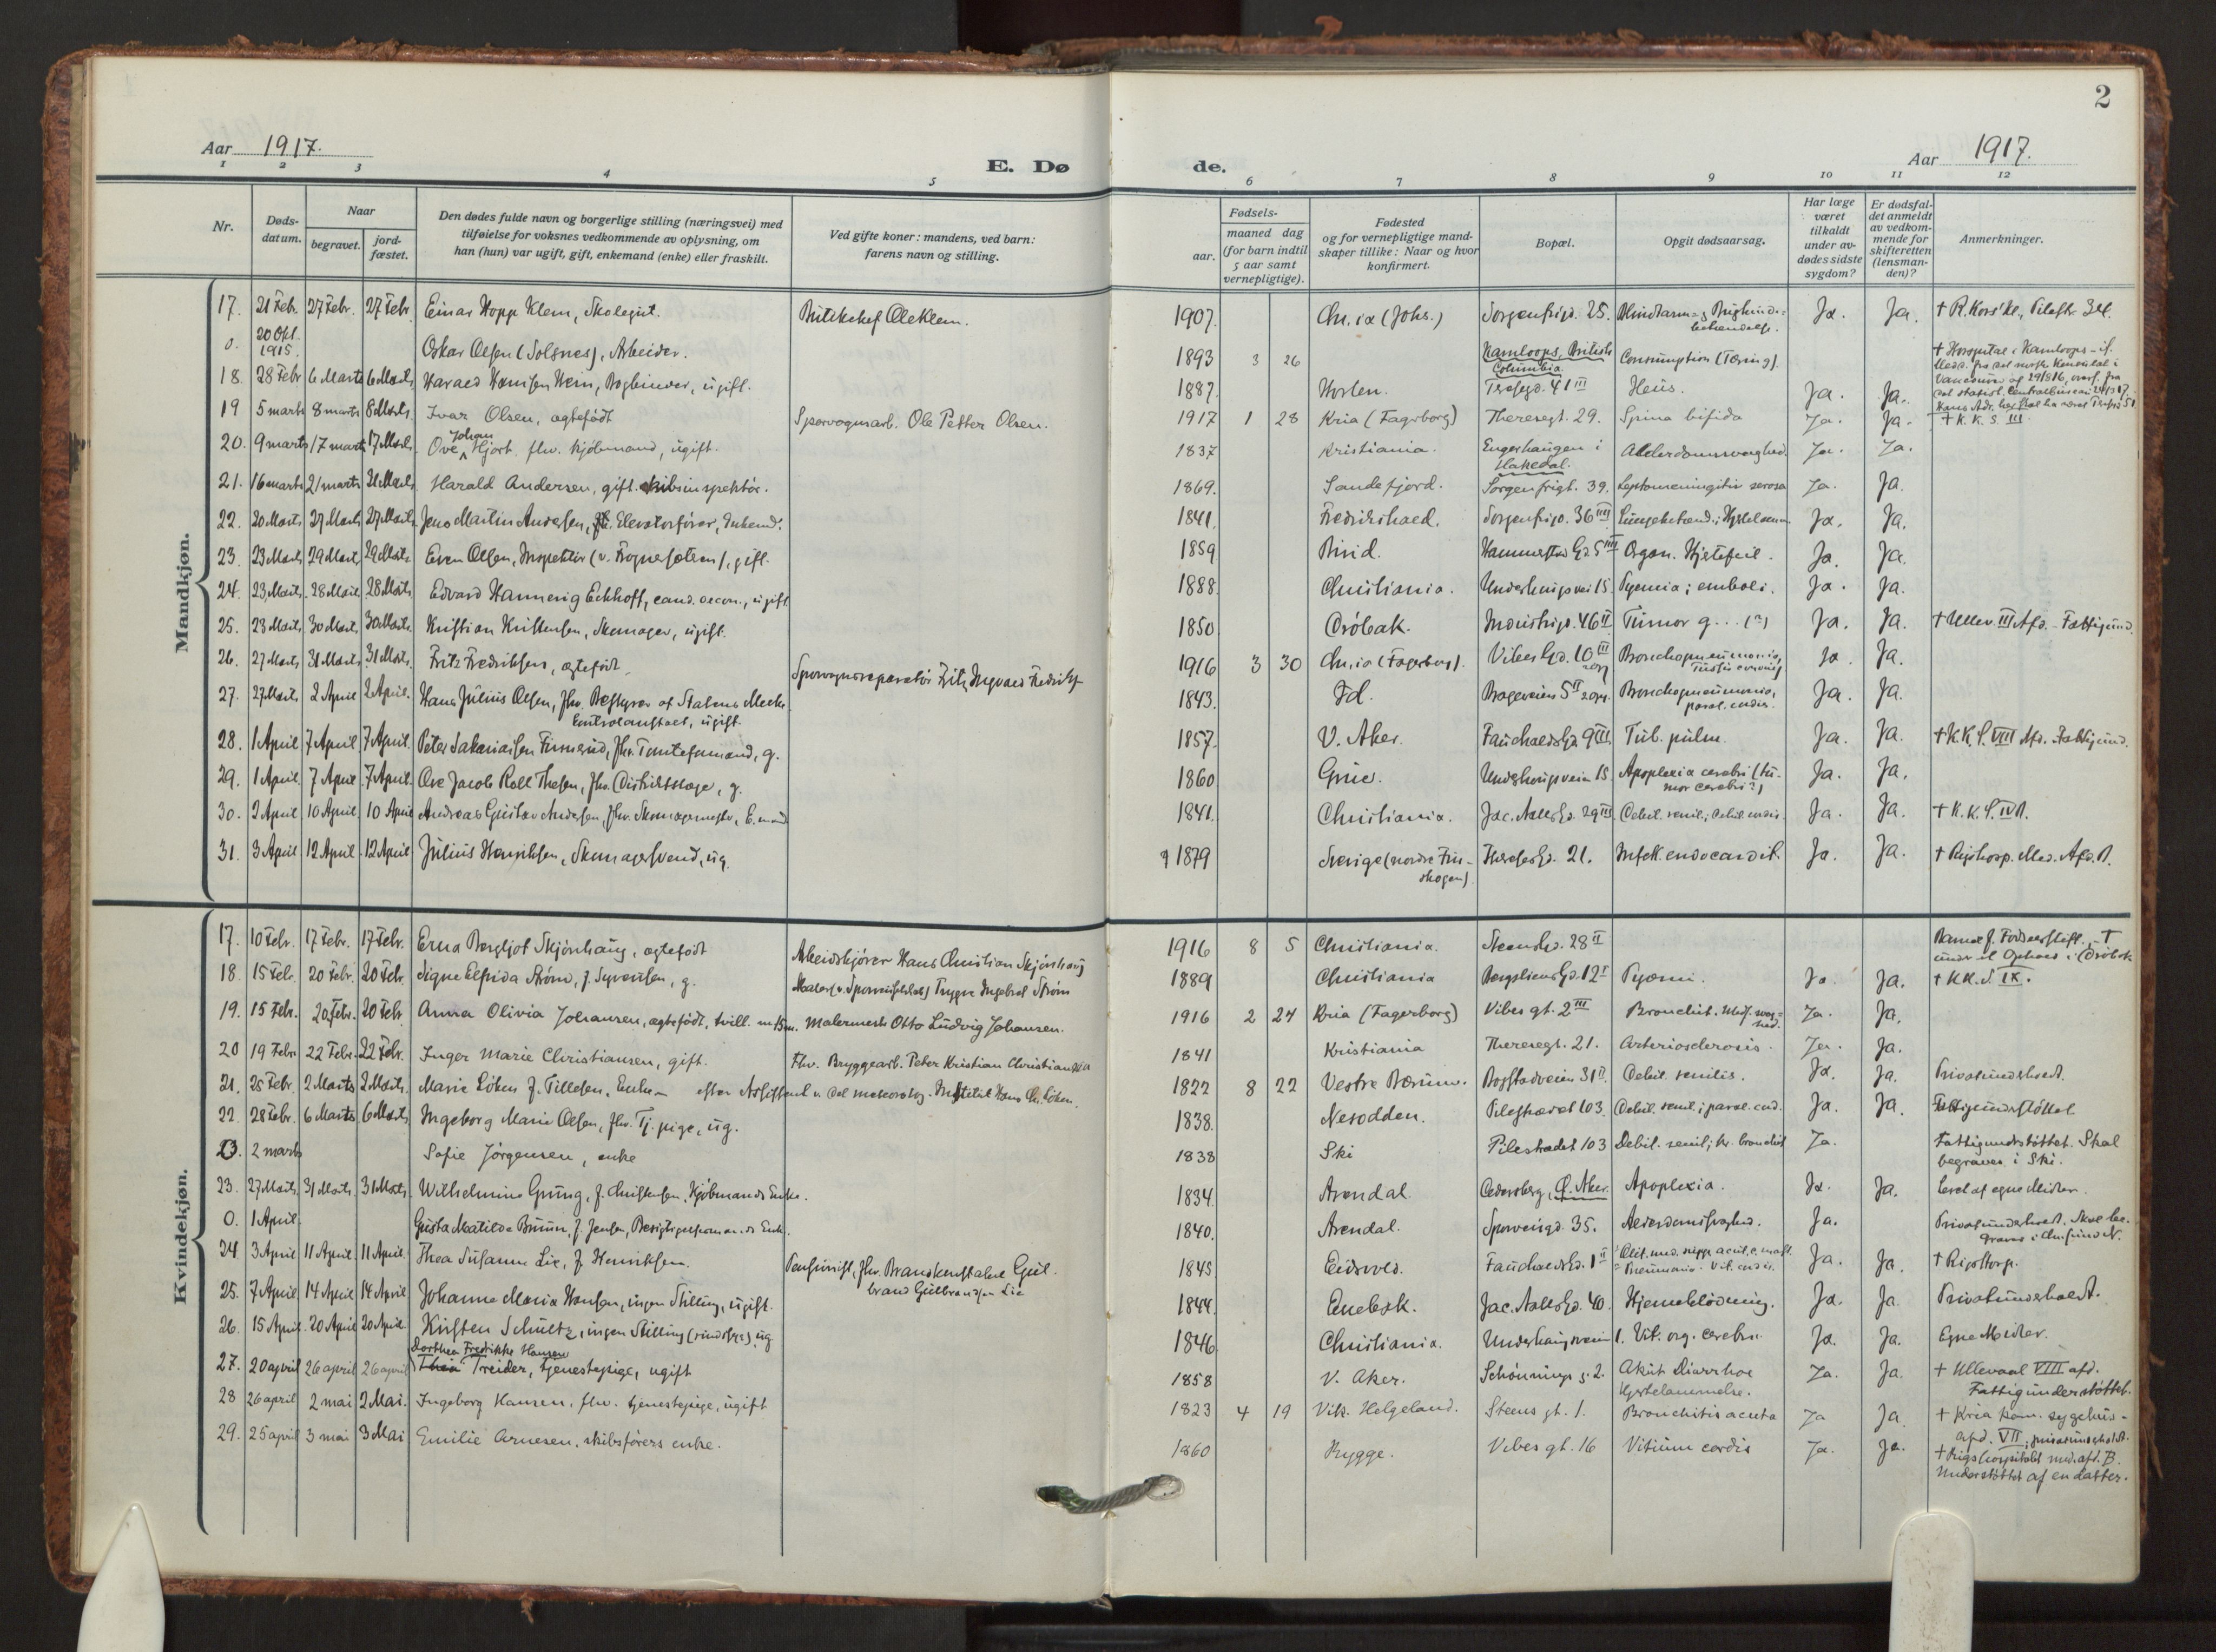 2
Aar 1917.
Aar 1917.
E. Døde.
1 2 3 4 5 6 7 8 9 10 11 12
Nr.
Dødsdatum.
Naar
begravet.
jordfæstet.
Den dødes fulde navn og borgerlige stilling (næringsvei) med
tilføielse for voksnes vedkommende av oplysning, om
han (hun) var ugift, gift, enkemand (enke) eller fraskilt.
Ved gifte koner: mandens, ved barn:
farens navn og stilling.
Fødsels-
aar. maaned dag
(for barn indtil
5 aar samt
vernepligtige).
Fødested
og for vernepligtige mand-
skaper tillike: Naar og hvor
konfirmert.
Bopæl.
Opgit dødsaarsag.
Har læge
været
tilkaldt
under av-
dødes sidste
sygdom?
Er dødsfal-
det anmeldt
av vedkom-
mende for
skifteretten
(lensman-
den)?
Anmerkninger.
Mandkjøn.
17. 21 Febr. 27 Febr. 27 Febr. Einar Hopp Klem, Skolegut. Ole Klem. 1907. Ch.ia (Johs.) Sorgenfrigd. 25. Ja. Ja. † R. Kors' kl., Pilestr.
0. 20 Okt. 1915. Oskar Olsen (Solsnes), Arbeider. 1893 3 26 Kamloops, British Columbia Consumption (Tæring). † Hospital i Kamloops
18. 28 Febr 6 Marts 6 Marts Harald Hansen Hein, Bogbinder, ugift. 1887. Horten. Theresgd. 41 III Ileus. Ja. Ja.
19 5 marts 8 marts 8 Marts Ivar Olsen, egtefødt Sporvognsarb. Ole Petter Olsen. 1917 1 28 Kria (Fagerborg) Theresegt. 29. Spina bifida Ja. Ja. † K. K. S. III
20. 9 marts 17 marts 17 Marts Ove Johan Hjort flv. kjøbmand, ugift. 1837 Kristiania. Engerhaugen i Hakedal. Alderdomssvaghed. Ja. Ja.
21. 16 marts 21 marts 21 Marts Harald Andersen, gift. skibsinspektør. 1869. Sandefjord. Sorgenfrigt. 39. Leptomeningitis serosa Ja. Ja.
22. 20 Marts 27 Marts 27 Marts Jens Martin Andersen, fv. Elevatorfører, Enkemd. 1841. Fredrikshald. Sorgenfrigd. 36 IIII Ja. Ja.
23. 23 Marts 29 Marts 29 Marts Even Olsen, Inspektør (v. Frognersæteren), gift. 1859 Biri Hammerstads Gd. 5 III Organ. Hjertefeil. Ja. Ja.
24. 23 Marts 28 Marts 28 Marts Edvard Hannevig Eckhoff, cand. oecon., ugift 1888. Christiania. Underhaugsvei 15. Pyemia; emboli. Ja. Ja.
25. 23 Marts 30 Marts 30 Marts Kristian Kristensen, Skomager, ugift. 1850 Drøbak. Industrigd. 46 II Tumor g... (?) Ja. Ja. † Ullev. III Afd. - Fattigund.
26. 27 Marts 31 Marts 31 Marts Fritz Fredriksen, egtefødt Sporvognsreparatør Fritz Ingvald Fredriks 1916 3 30 Ch.ia (Fagerborg). Vibes Gd. 10 III Bronchopneumonia, Ja. Ja.
27. 27 Marts 2 April 2 April. Hans Julius Olsen, fhv. Bestyrer af Statens Melke-kontrolanstalt, ugift. 1843. Id. Bogsveien 5 II Bronchopneumonia, paral. cordis. Ja. Ja.
28. 1 April 7 April 7 April. Peter Sakariasen Finnerud, fhv. Tomteformand, g. 1857. V. Aker. Fauchalds Gd. 9 III Tub. pulm. Ja. Ja. † K.K.S. VIII Afd. Fattigund.
29. 1 April 7 April 7 April. Ove Jacob Roll Thesen, fhv. Distriktslæge, g. 1860 Grue. Underhaugsveien 15 Apoplexia cerebri (tumor cerebri?) Ja. Ja.
30. 2 April 10 April 10 April Andreas Gustav Andersen, fhv. Skomagermester, E.mand 1841. Christiania. Jac. Aalls Gd. 29 III Debil. senil.; debil. cordis. Ja. Ja. † K. K. S. IV A.
31. 3 April 12 April 12 April Julius Henriksen, Skomagersvend, ug. 1879 Sverige (nordre Finskogen) Theresesgd. 21. Infekt. endocardit. Ja. Ja. † Rigshosp. Med. Afd. B.
Kvindekjøn.
17. 10 Febr. 17 Febr. 17 Febr. Erna Bergljot Skjønhaug, egtefødt Arbeidskjører Hans Christian Skjønhaug 1916 8 5 Christiania. Steens Gd. 28 II
18. 15 Febr. 20 Febr. 20 Febr. Signe Elfrida Strøm, f. Syversen, g. Trygve Ingebret Strøm 1889 Christiania Bergsliens Gd. 12 I Pyæmi. Ja. Ja. † K.K.S. IX.
19. 15 Febr. 20 Febr. 20 Febr Anna Olivia Johansen, egtefødt, tvill. Malermester Otto Ludvig Johansen. 1916 2 24 Kria (Fagerborg) Vibes gt. 2 III Bronchit. Ja. Ja.
20 19 Febr 22 Febr. 22 Febr. Inger Marie Christiansen, gift. Fhv. Bryggearb. Peter Kristian Christiansen 1841 Kristiania Theresegt. 21. Arteriosclerosis. Ja. Ja.
21. 25 Febr. 2 Marts 2 Marts. Marie Løken f. Tillesen. Enke efter Assistent v. det meteorolog. Institut Hans Løken. 1822 8 22 Vestre Bærum. Bogstadveien 31 II Debil. senilis. Ja. Ja. Privatunderholdt.
22. 28 Febr. 6 Marts 6 Marts Ingeborg Marie Olsen, fhv. Tj. pige, ug. 1838. Nesodden. Pilestrædet 103. Debil. senil; paral. cord. Ja. Ja. Fattigunderstøttet
0. 2 marts Sofie Jørgensen, enke 1838 Ski Pilestrædet 103 Debil. senil; kr. bronchit Ja. Fattigunderstøttet. Skal begraves i Ski.
23. 27 Marts 31 Marts 31 Marts Wilhelmine Grung, f. Christensen, Kjøbmands Enke. 1834 Arendal. Cedersberg, Ø. Aker. Apoplexia. Ja. Ja. Levet af egne Midler.
0. 1 April. Gusta Matilde Bruun, f. Jensen, Besigtigelsesmands Enke. 1840. Arendal. Sporveisgd. 35. Alderdomssvaghed. Ja. Privatunderholdt.
24 3 April 11 April 11 April. Thea Susanne Lie, f. Henriksen. Pensionist, fhv. Brandkonstabel Gulbrand Gulbrandsen Lie 1845 Eidsvold. Fauchalds Gd. 1 II Ja. Ja. † Rigshosp.
25. 7 April 14 April 14 April Johanne Maria Hansen, ingen Stilling, ugift. 1844. Enebak. Jac. Aalls Gd. 40. Hjerneblødning. Ja. Ja. Privatunderholdt.
26. 15 April. 20 April 20 April Kirsten Schultz, ingen Stilling (sindssyg), ug 1846 Christiania. Underhaugsveien 1. Vit. org. cerebri. Ja. Ja. Egne Midler.
27. 20 april 26 april 26 april Dorthea Fredrikke Hansen Thea Treider, tjenestepige, ugift 1858 V. Aker. Schønnings g. 2. Akut Diarrhoe Hjertelammelse. Ja. Ja. † Ullevaal VIII afd. Fattigunderstøttet.
28 26 april 2 mai 2 Mai. Ingeborg Hansen, fhv. tjenestepige, ugift 1823 4 19 Vik. Helgeland. Steens gt. 1. Bronchitis acuta Ja Ja. † Kria kom. sygehus - afd. VII; privatunderholdt.
29. 25 april 3 mai 3 Mai Emilie Arnesen, skibsførers enke. 1860 Rygge. Vibes gt. 16 Vitium cordis Ja. Ja. † Rigshospitalet med. afd. B. Understøttet af en datter.